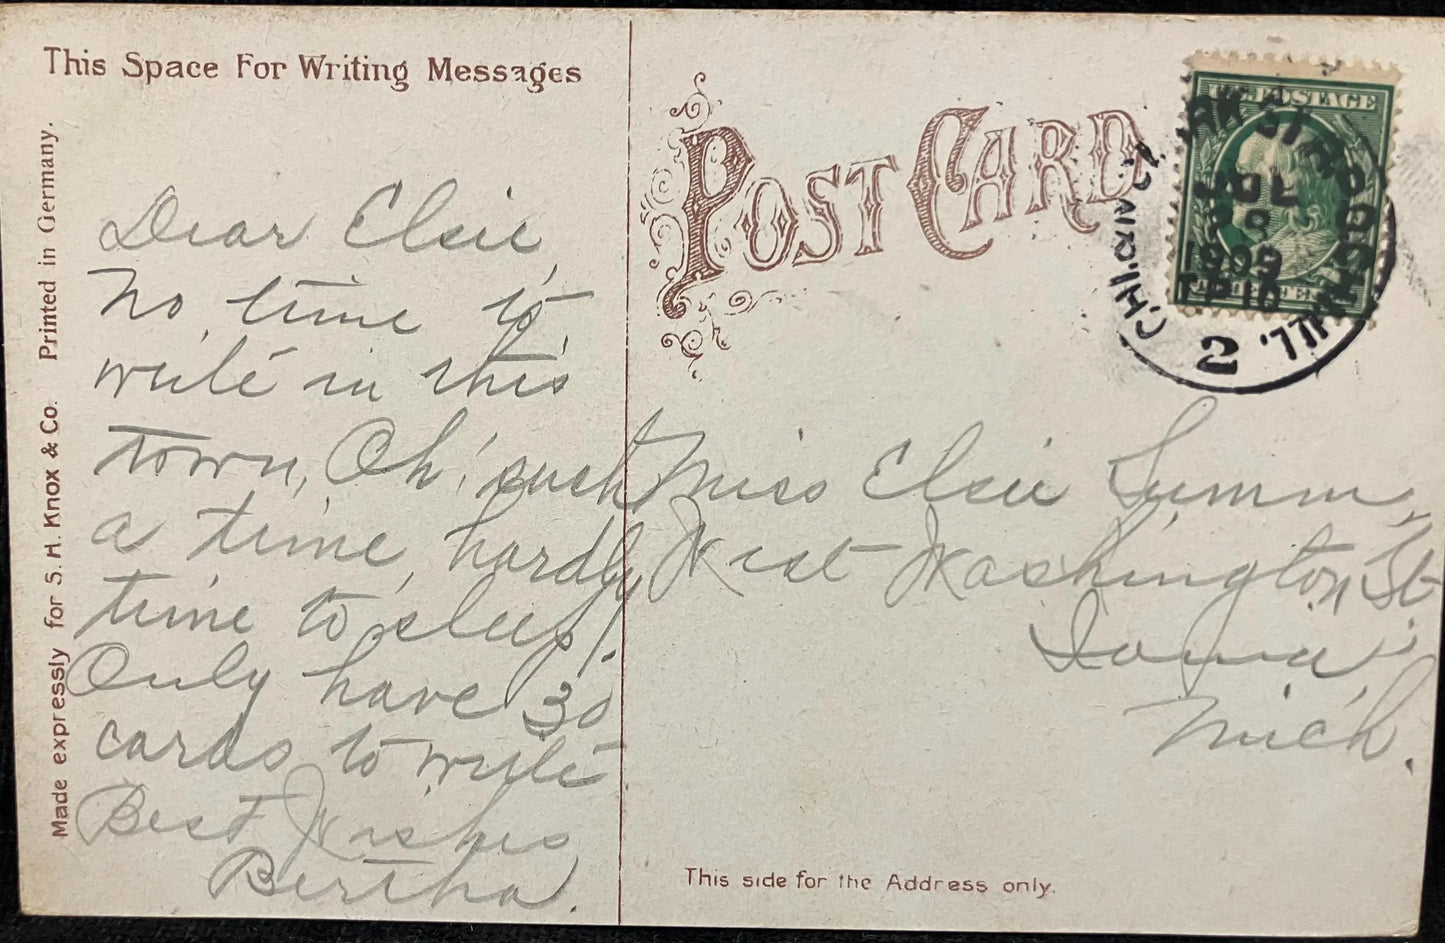 This Space For Writing Messages
Made expressly for S. H. Knox & Co. Printed in Germany.
Dear Elsie,
No time to
write in this
town, Oh! such
a time, hardly
time to sleep!
Only have 30
cards to write
Best Wishes
Bertha.
POST CARD
U.S. POSTAGE
CHI. & N.Y.
JUL
1909
TP 10
ILL.
2
Miss Elsie Summ,
West Washington St.
Ionia,
Mich.
This side for the Address only.